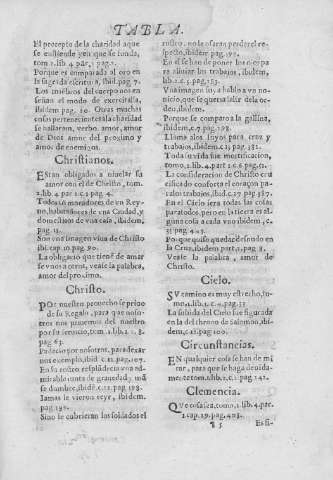 TABLA.
El precepto de la charidad aque
se estiende y en que se funda,
tom 2. lib 4 par. 1 pag. 1.
Porque es comparada al oro en
la sagrada escritura, ibid. pag. 7.
Los miēbros del cuerpo nos en
señan el modo de exercitalla,
ibidem pag. 10. Otras muchas
cosas pertenecientes a la charidad
se hallaran, verbo, amor, amor
de Dios amor del proximo y
amor de enemigos.
Christianos.
EStan obligados a nivelar su
amor con el de Christo, tom.
2. lib. 4 par 1. c. 3 pag. 4.
Todos son moradores de un Rey-
no, habitadores de una Ciudad, y
domesticos de una casa, ibidem,
pag. 15.
Son una imagen viva de Christo
ibi. cap. 10. pag. 90.
La obligacio que tienē de amar
se unos a otros, veate la palabra,
amor del proximo.
Christo.
POr nuestro provecho se privo
de su Regalo, para que noso-
tros nos privemos del nuestro
por su servicio, tom. 1. lib. 1. c. 3.
pag. 63.
Padecio por nosotros, para dexar
nos exemplo, ibid. c. 21. pag. 107.
En su rostro resplādecia una ad-
mirable junta de gravedad, y mā
se dumbre, ibid. c. 21. pag. 108.
Jamas le vieron reyr, ibidem.
pag. 190.
Sino le cubrieran los soldados el
rostro, no le osaran perder el res-
pecto, ibidem pag. 190.
En el se han de poner los ojos pa
ra aliviar los trabajos, ibidem,
lib. 2. c. 5. pag. 253.
Una imagen suya, a hablo a un no-
vicio, que se queria salir de la or-
den, ibidem.
Porque se comparo a la gallina,
ibidem. c. 7. pag. 198.
Llama a los suyos para cruz y
trabajos, ibidem. c. 23. pag. 381.
Toda su vida fue mortificacion,
tom. 2. lib. 4. part 1. c. 6. pag. 51.
La consideracion de Christo cru
cificado conforta el coraçon pa
ra los trabajos, ibid. c. 27. pag. 389.
En el Cielo sera todas las cosas
para todos, pero en la tierra es al-
guna cosa a cada uno ibidem, c.
35. pag. 403.
Por que quiso quedar desnudo en
la Cruz, ibidem part. 2. pag. 8.
Veate la palabra, amor de
Christo.
Cielo.
SU camino es muy estrecho, to-
mo. 1. lib. 1. c. 4. pag. 35.
La subida del Cielo fue figurada
en la del throno de Salomon, ibi-
dem, c. 21. pag. 100.
Circunstancias.
EN qualquier cosa se han de mi-
rar, para que se haga devida-
mente tom. 1. lib. 1. c. 2. pag. 142.
Clemencia.
QUe cosa sea, tomo, 1. lib. 4. par.
1. cap. 19. pag. 403.
¶ 5
Es si-